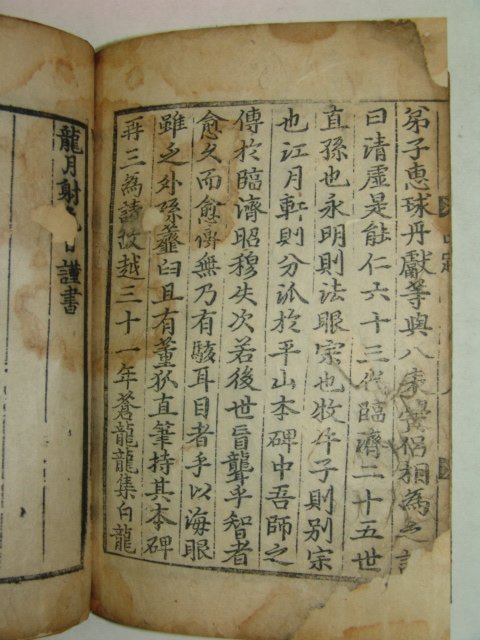 弟子惠球丹獻等與八表
侶相為之
曰清虛是能仁六十三代臨濟二十五世
直孫也永明則法眼宗也牧牛子則別宗
也江月軒則分泒於平山本碑中吾師之
傳於臨濟昭穆失次若後世盲聾乎智者
愈久而愈衡無乃有駭耳目者乎以海眼
雖乏外孫虀臼且有董狐直筆持其本碑
再三為請故越三十一年蒼龍龍集白龍
龍月射
日謹書